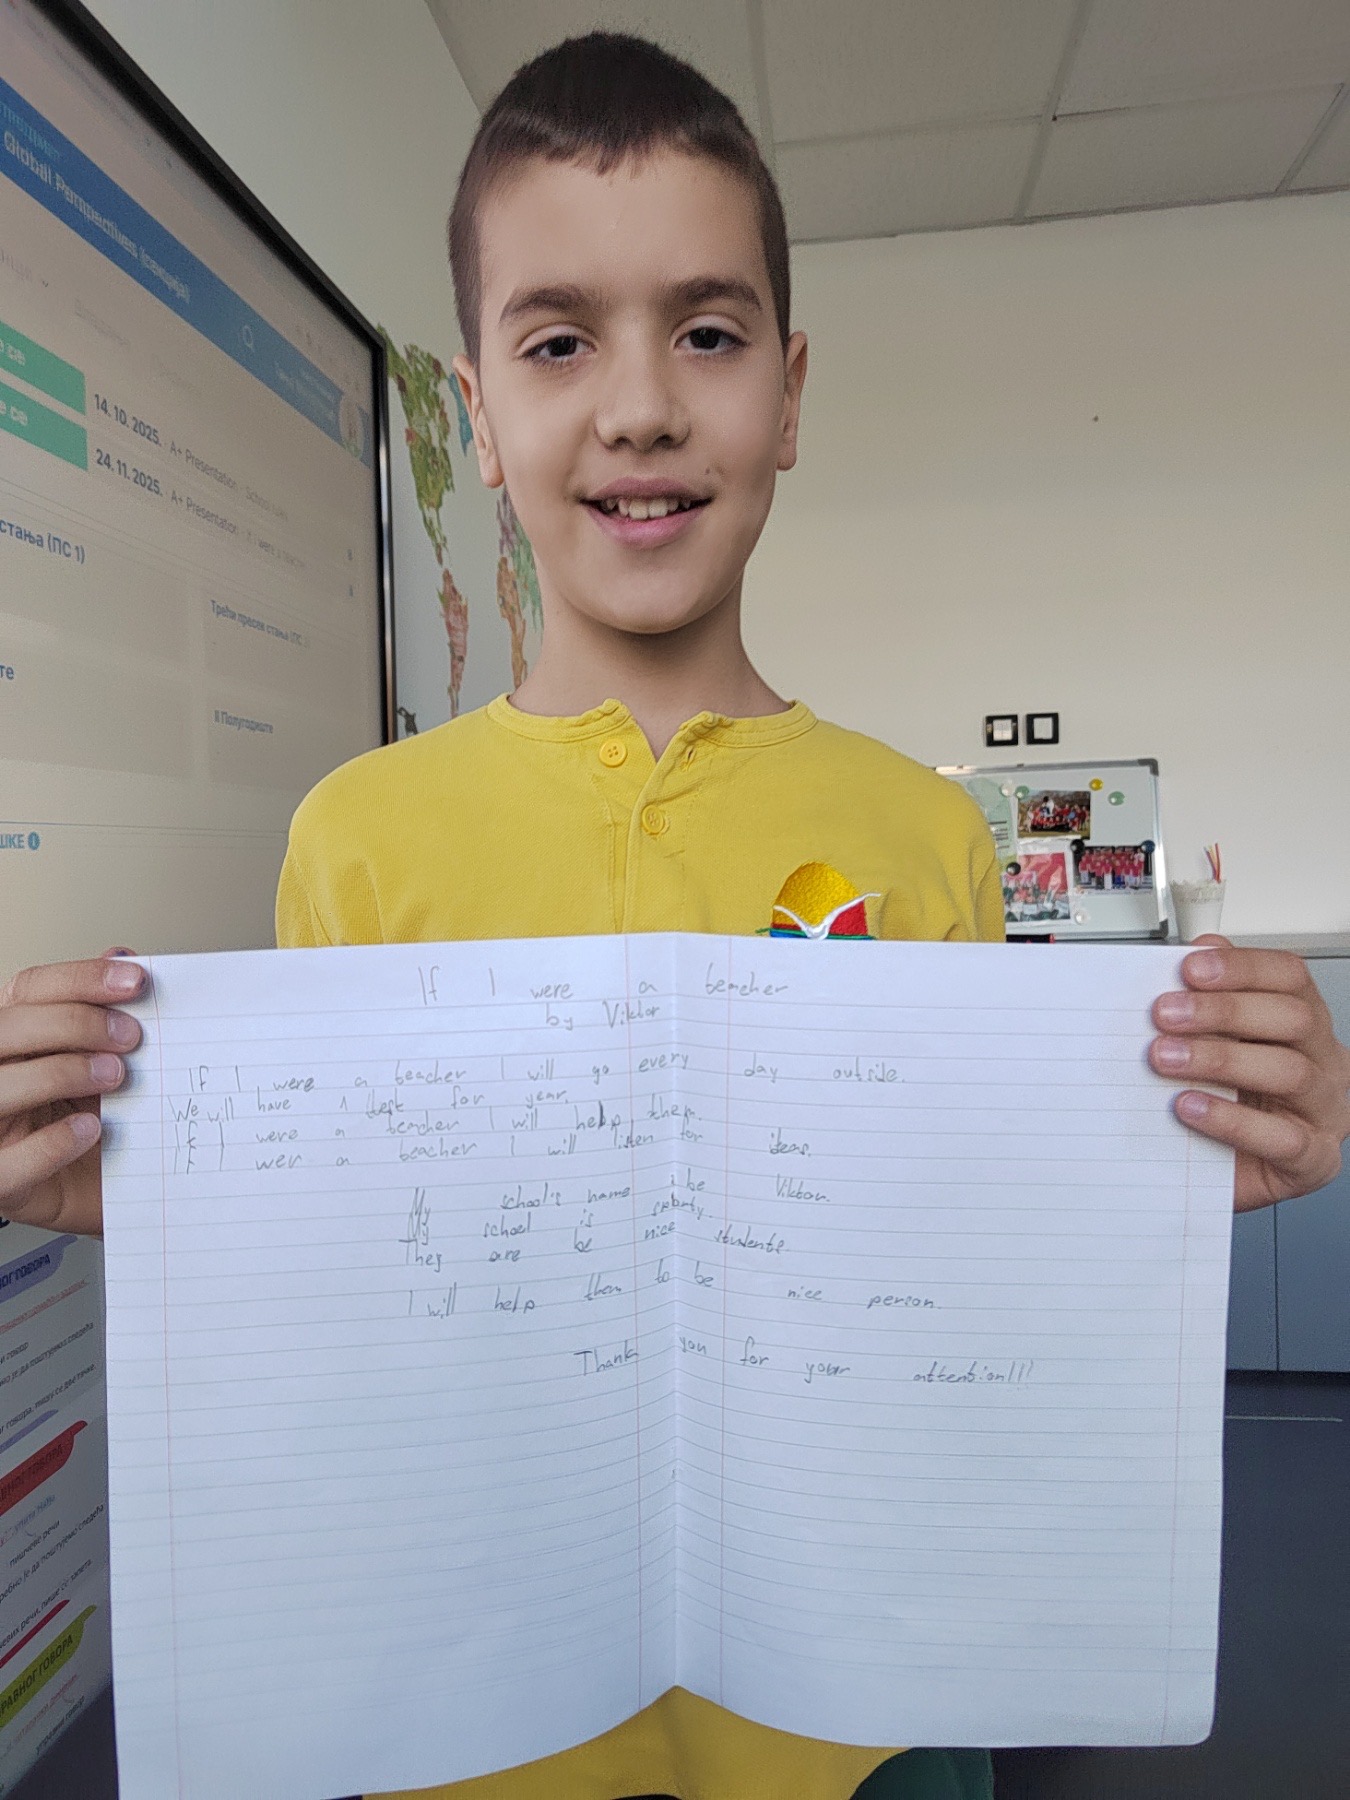 Global Perspectives (секција)
14. 10. 2025. A+ Presentation
24. 11. 2025. A+ Presentation
стања (ПС 1)
Трећи пресек стања (ПС
II Полугодиште
ШКЕ
If I were a teacher
by Viktor
If I were a teacher I will go every day outside.
We will have 1 test for year.
If I were a teacher I will help them.
If I wer a teacher I will listen for ideas.
My school's name i be Viktor.
My school is sporty.
They are be nice students.
I will help them to be nice person.
Thank you for your attention!!!
НОГ ГОВОРА
РАВНОГ ГОВОРА